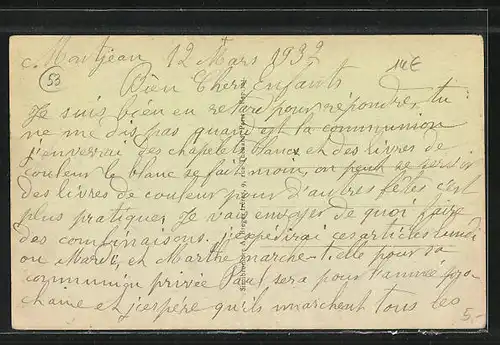 c. Montjean 12 Mars 1932
14€
53
Bien Chers Enfants
Je suis bien en retard pour répondre, tu
ne me dis pas quand est la communion
j'enverrai des chapelets blancs et des livres de
couleur le blanc se fait moins, on peut se servir
des livres de couleur pour d'autres fêtes c'est
plus pratique, Je vais envoyer de quoi faire
des combinaisons. j'expédirai ces articles Lundi
ou Mardi, et Marthe marche-t-elle pour sa
communion privée Paul sera pour l'année pro-
chaine et j'espère qu'ils marchent tous les
5.-